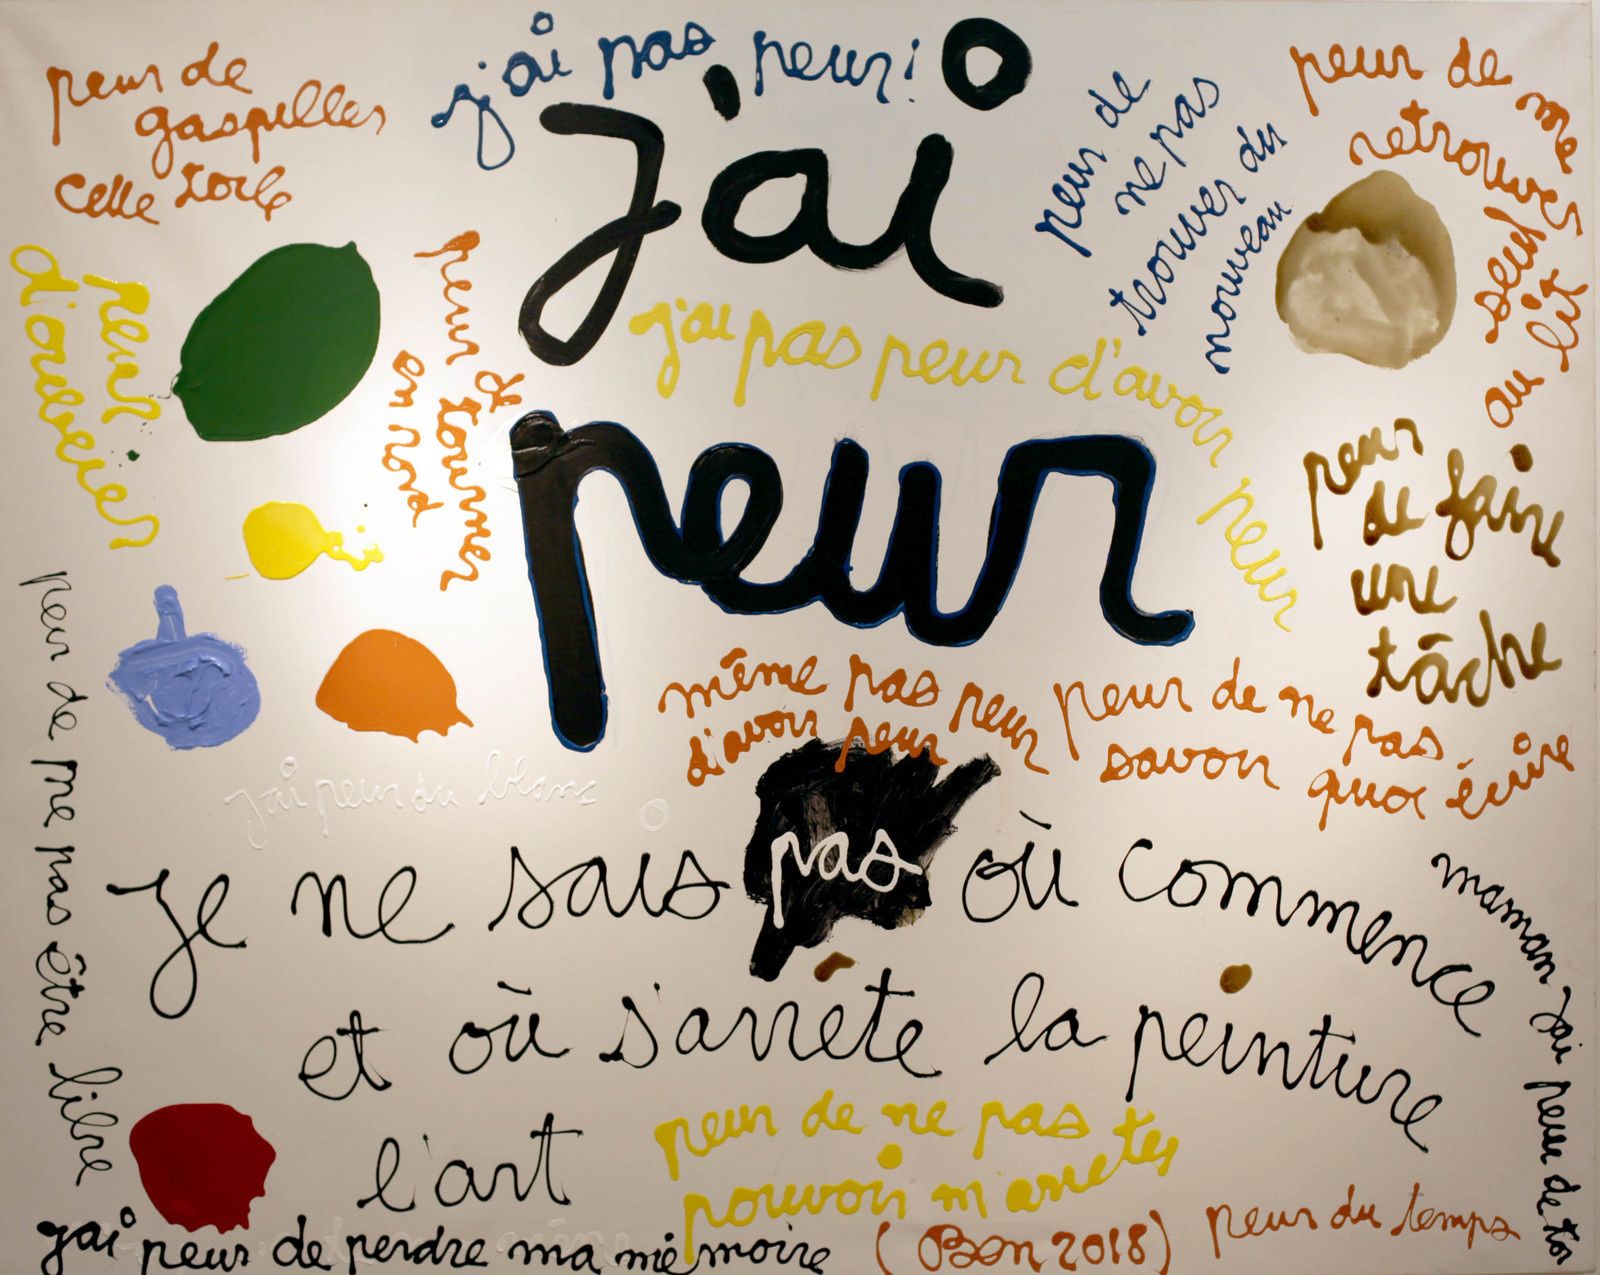 peur de
gaspiller
cette toile
j'ai pas peur!
j'ai
peur
peur de
ne pas
trouver du
nouveau
peur de me
retrouver
seul
au lit
peur
d'oublier
peur de
tourner
en rond
j'ai pas peur d'avoir peur
peur
de faire
une
tâche
même pas peur
d'avoir peur
peur de ne pas
savoir quoi écrire
j'ai peur du blanc
je ne sais pas où commence
et où s'arrête la peinture
l'art
peur de me pas être libre
maman j'ai peur de toi
peur de ne pas
pouvoir m'arreter
j'ai peur de perdre ma mémoire
(Ben 2018)
peur du temps